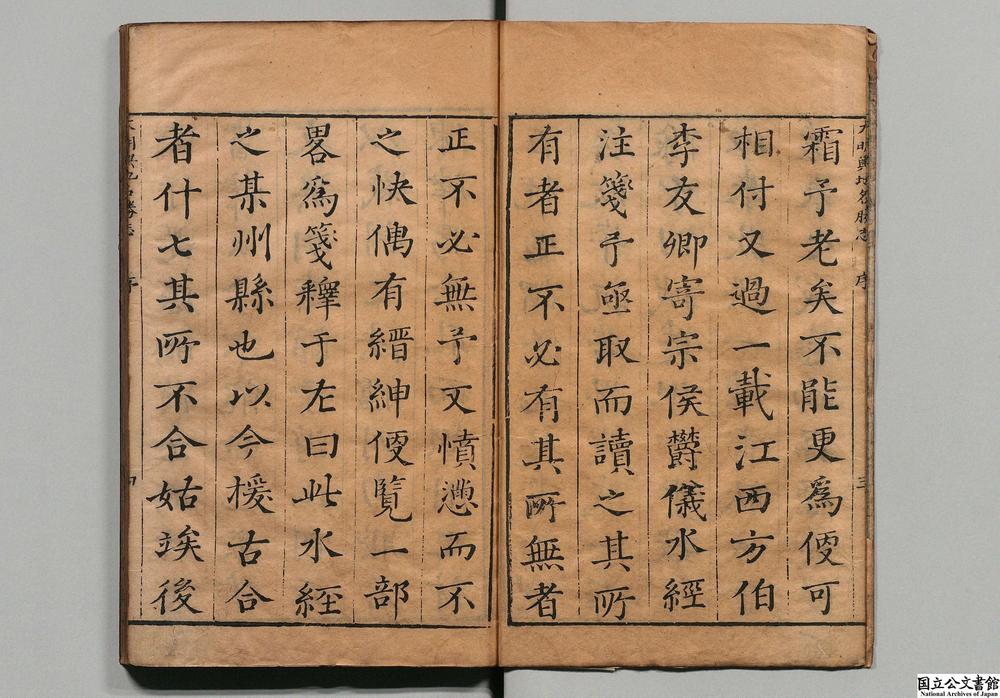 大明輿地名勝志
序
三
霜予老矣不能更爲便可
相付又過一載江西方伯
李友卿寄宗侯欝儀水經
注箋予亟取而讀之其所
有者正不必有其所無者
正不必無予又憤懣而不
之快偶有縉紳便覽一部
畧爲箋釋于左曰此水經
之某州縣也以今楥古合
者什七其所不合姑竢後
序
四
国立公文書館
National Archives of Japan